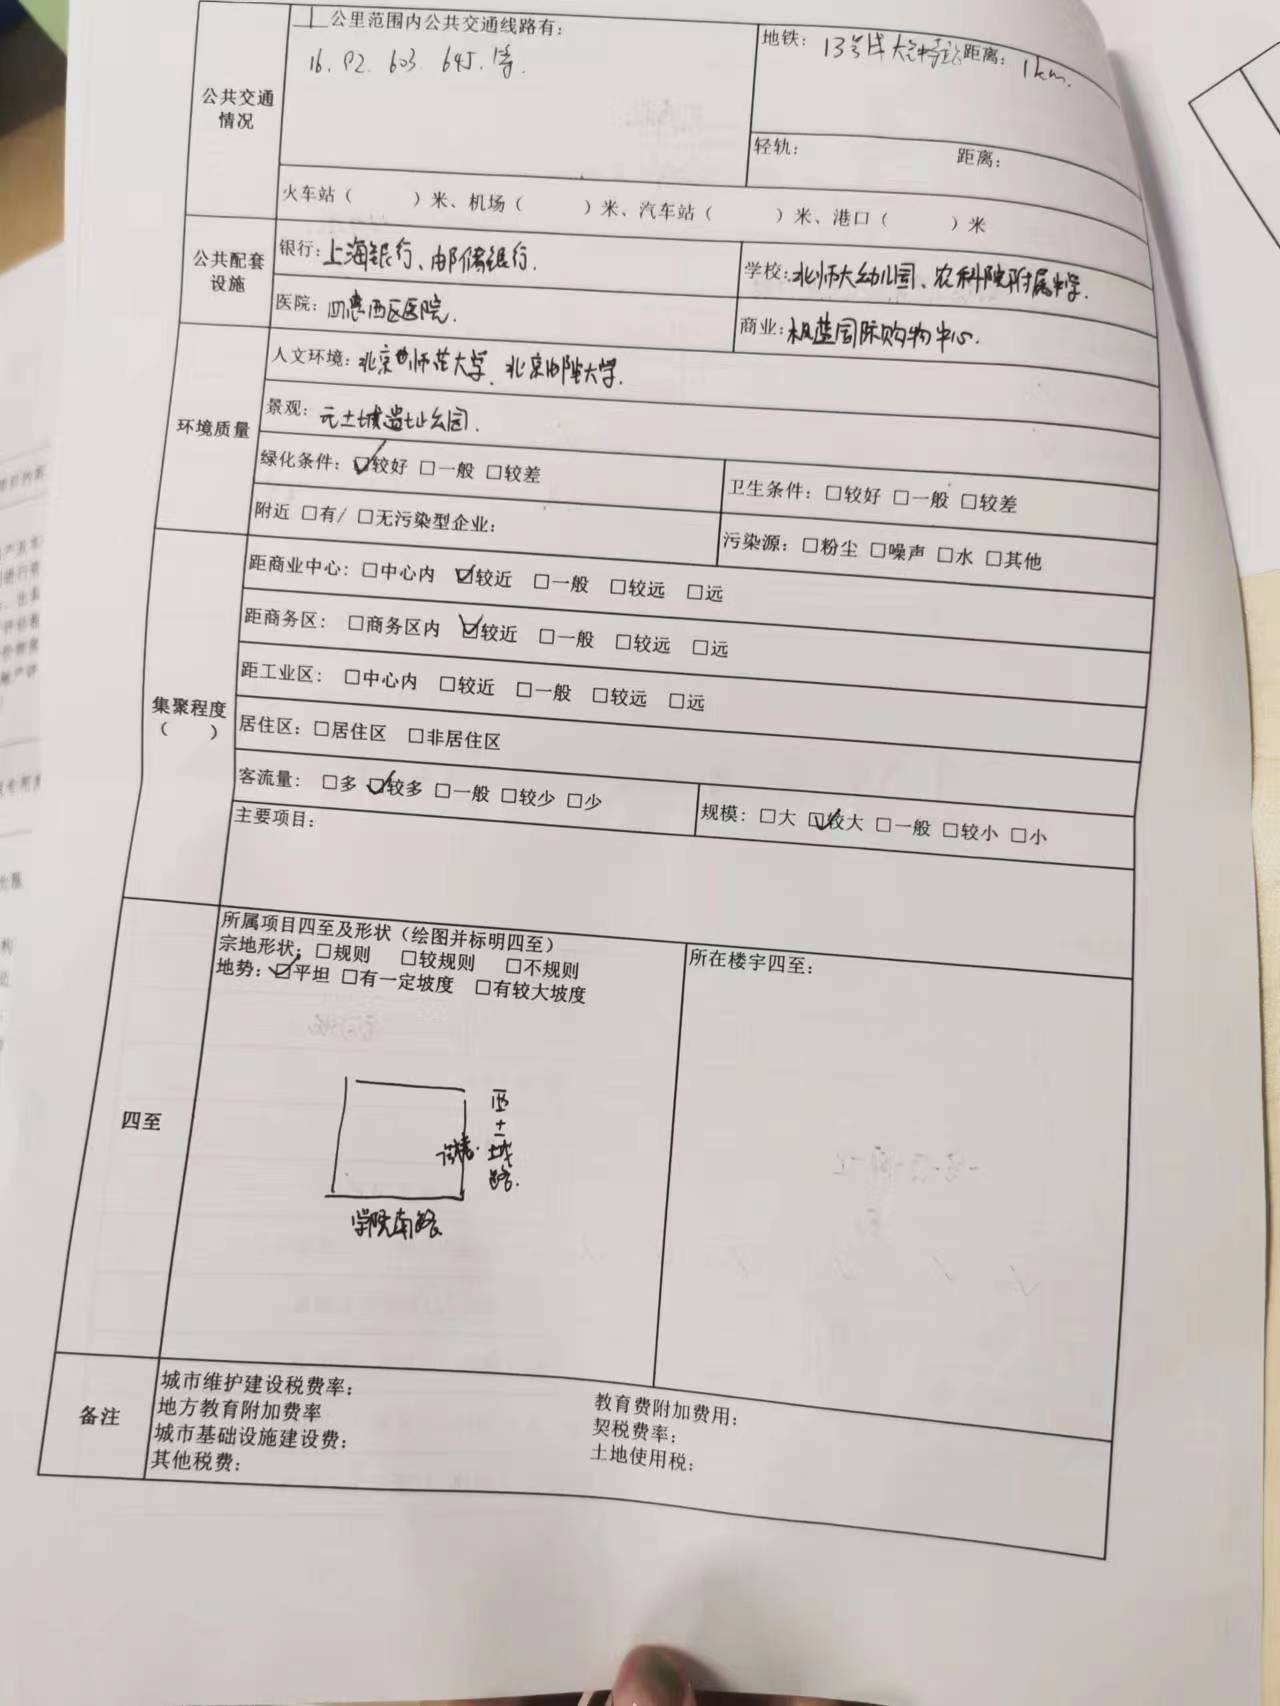 1 公里范围内公共交通线路有：
16. 82. 603. 645. 等.
地铁：13号线大钟寺站 距离：1km.
公共交通
情况
轻轨： 距离：
火车站（ ）米、机场（ ）米、汽车站（ ）米、港口（ ）米
公共配套
设施
银行：上海银行、邮储银行.
学校：北师大幼儿园、农科院附属中学.
医院：西区医院.
商业：国际购物中心.
环境质量
人文环境：北京师范大学、北京邮电大学.
景观：元土城遗址公园.
绿化条件：☑较好 □一般 □较差
卫生条件：□较好 □一般 □较差
附近 □有/ □无污染型企业：
污染源：□粉尘 □噪声 □水 □其他
集聚程度
（ ）
距商业中心：□中心内 ☑较近 □一般 □较远 □远
距商务区：□商务区内 ☑较近 □一般 □较远 □远
距工业区：□中心内 □较近 □一般 □较远 □远
居住区：□居住区 □非居住区
客流量：□多 ☑较多 □一般 □较少 □少
规模：□大 ☑较大 □一般 □较小 □小
主要项目：
四至
所属项目四至及形状（绘图并标明四至）
宗地形状：□规则 □较规则 □不规则
地势：☑平坦 □有一定坡度 □有较大坡度
所在楼宇四至：
西土城路.
学院南路
备注
城市维护建设税费率：
教育费附加费用：
地方教育附加费率
契税费率：
城市基础设施建设费：
土地使用税：
其他税费：